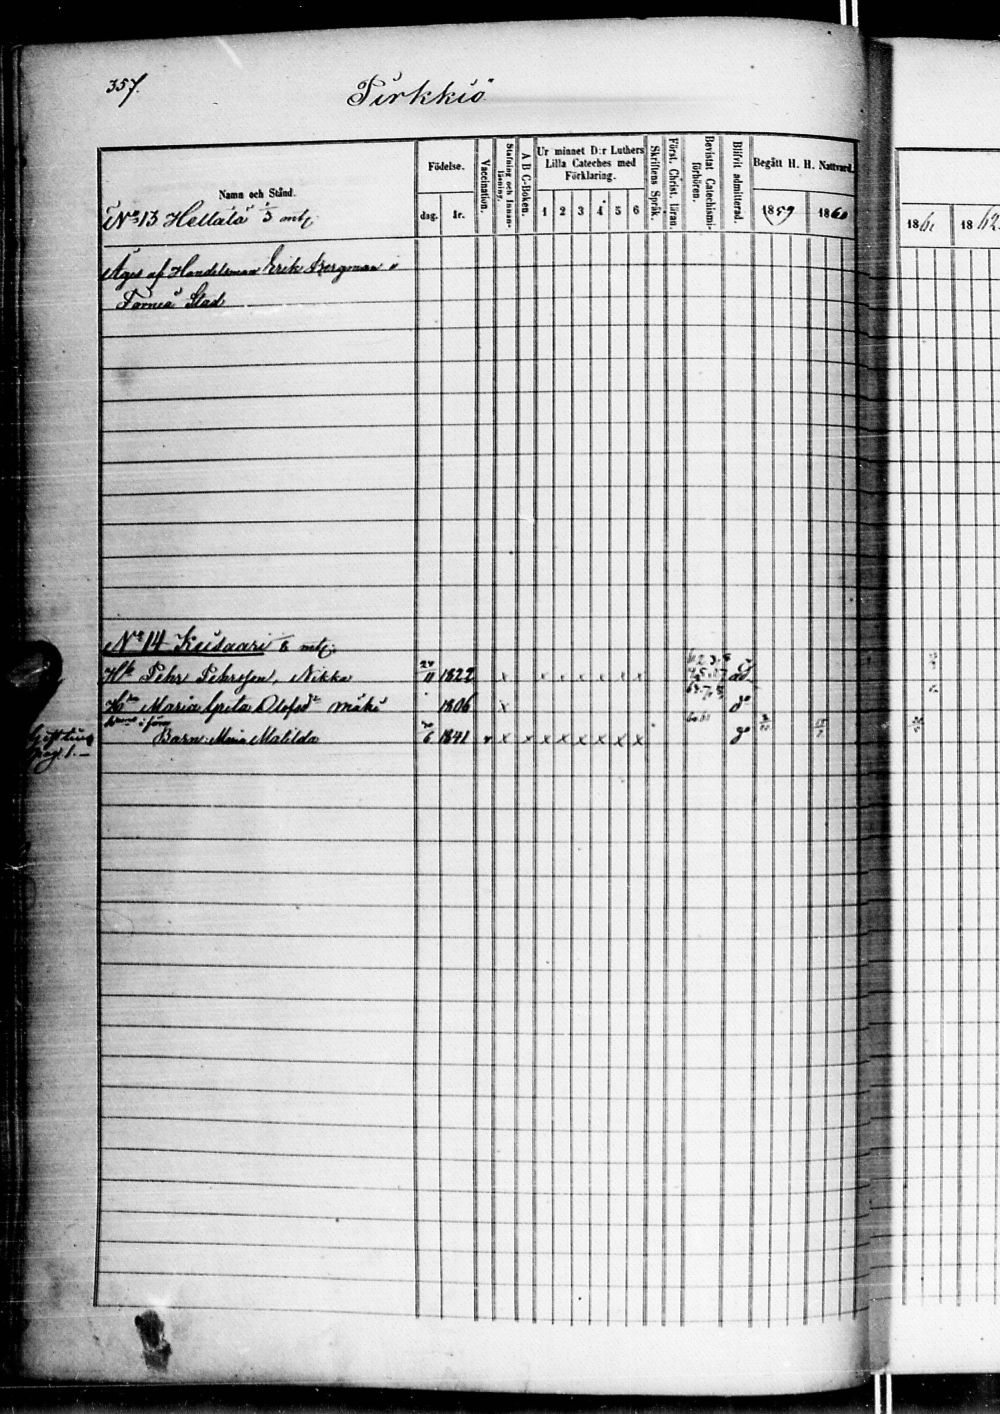 357.
Pirkkiö
Namn och Stånd.
Födelse.
dag.
år.
Vaccination.
Stafning och Innan-läsning.
A B C-Boken.
Ur minnet D:r Luthers
Lilla Cateches med
Förklaring.
1 2 3 4 5 6
Skriftens Språk.
Först. Christ. läran.
Bevistat Catechismi-förhören.
Blifvit admitterad.
Begått H. H. Nattvard.
1859 1860
1861 1862
No 13 Hellälä 1/3 mtl.
Äges af Handelsman Erik Bergman i
Torneå Stad
No 14 Kiisaari mtl.
Pehr Pehrsson Nikka 11 1822 x x x x x x x
Maria Greta Olofsdr Mäki 1806 x
Barn: Maria Matilda 6 1841 x x x x x x x x
pag. 1. —